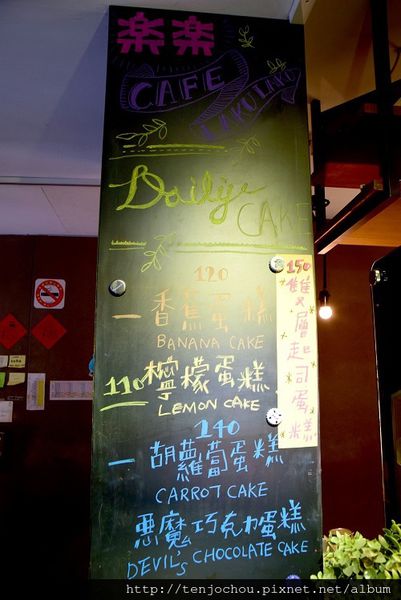 楽楽
CAFE
LAKU LAKU
Daily
CAKE
120
一香蕉蛋糕
BANANA CAKE
110 檸檬蛋糕
LEMON CAKE
140
一胡蘿蔔蛋糕
CARROT CAKE
惡魔巧克力蛋糕
DEVIL's CHOCOLATE CAKE
150
雙層起司蛋糕
http://tenjochou.pixnet.net/album